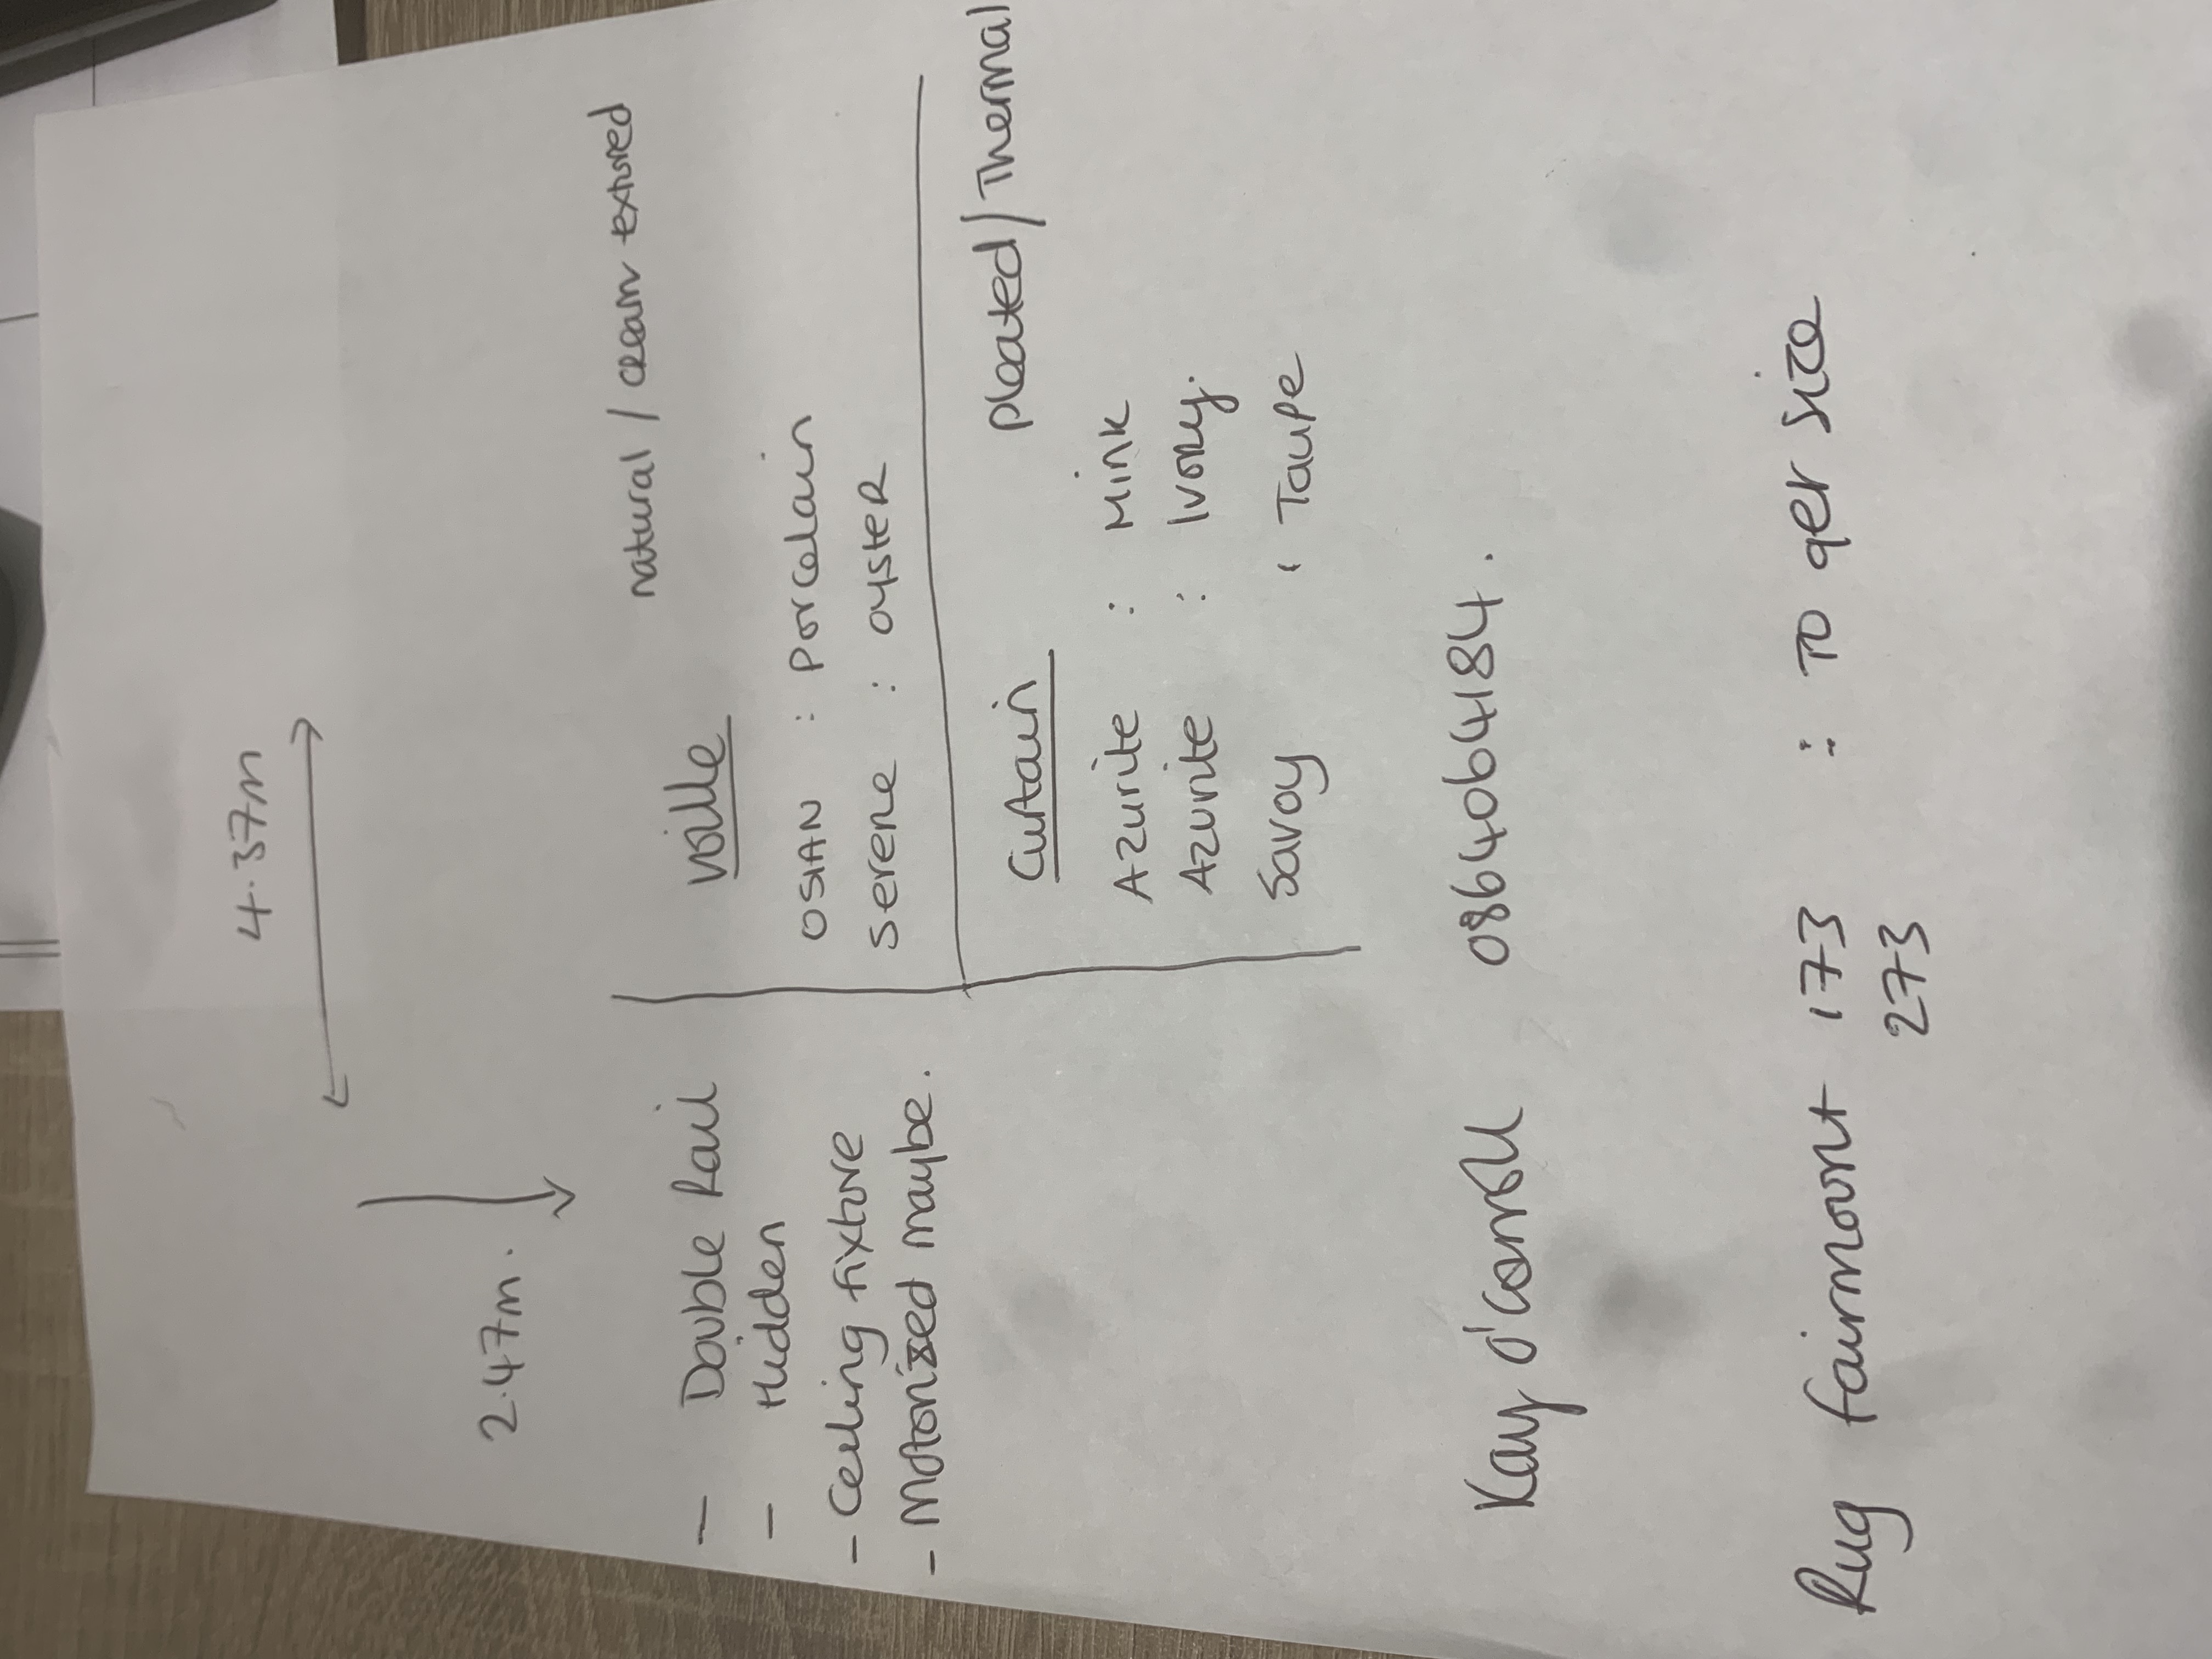 4.37m
2.47m.
- Double Rail
- Hidden
- Ceiling fixture
- Motorized maybe.
Voille natural / cream extured
OSIAN : Porcelain
Serene : oyster
Curtain pleated / Thermal
Azurite : Mink
Azurite : Ivory.
Savoy : Taupe
Kay O'Carroll 0864064184.
Rug fairmount 173 : To qer size
273